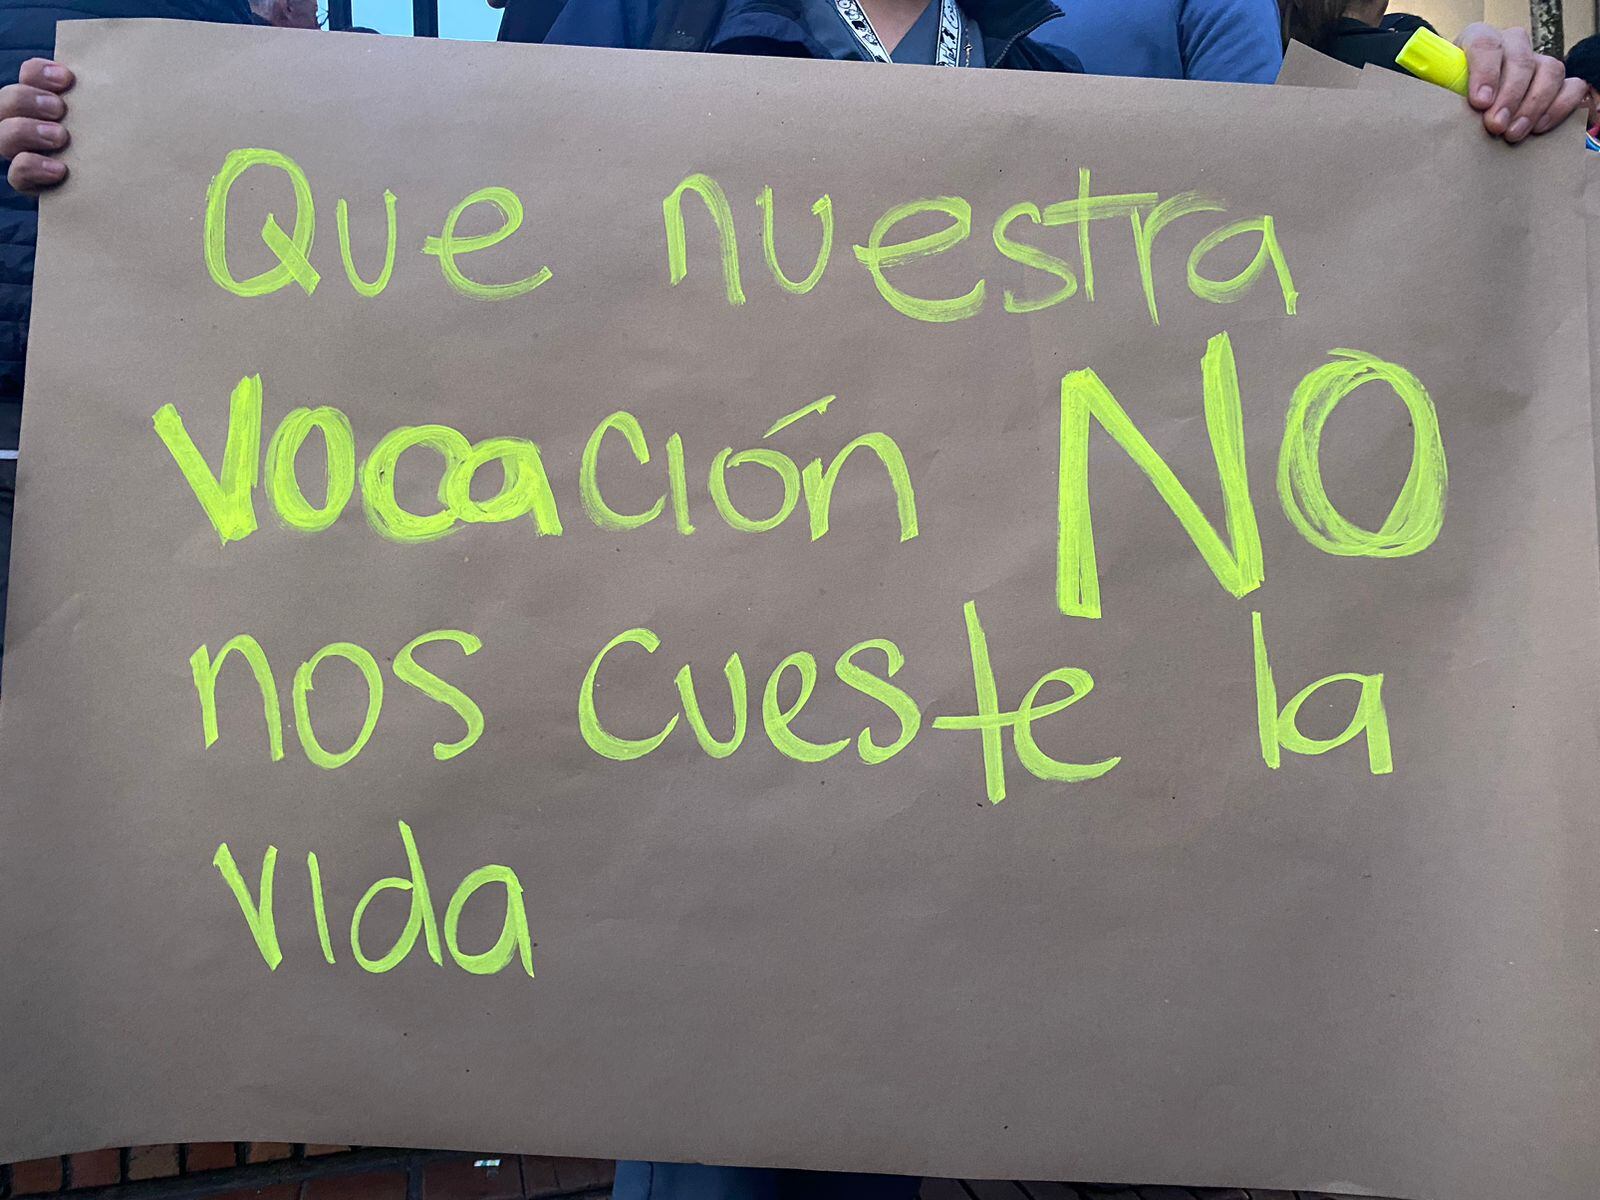 Que nuestra
vocación NO
nos cueste la
vida